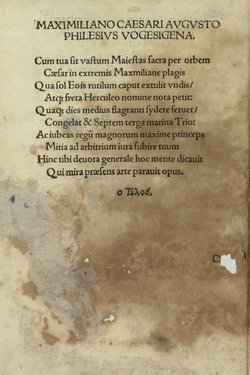 MAXIMILIANO CAESARI AVGVSTO
PHILESIVS VOGESIGENA.
Cum tua sit vastum Maiestas sacra per orbem
Cæsar in extremis Maximiliane plagis
Qua sol Eois rutilum caput extulit vndis/
Atq; freta Herculeo nomine nota petit:
Quaq; dies medius flagranti sydere feruet/
Congelat & Septem terga marina Trio:
Ac iubeas regū magnorum maxime princeps
Mitia ad arbitrium iura subire tuum
Hinc tibi deuota generale hoc mente dicauit
Qui mira præsens arte parauit opus.